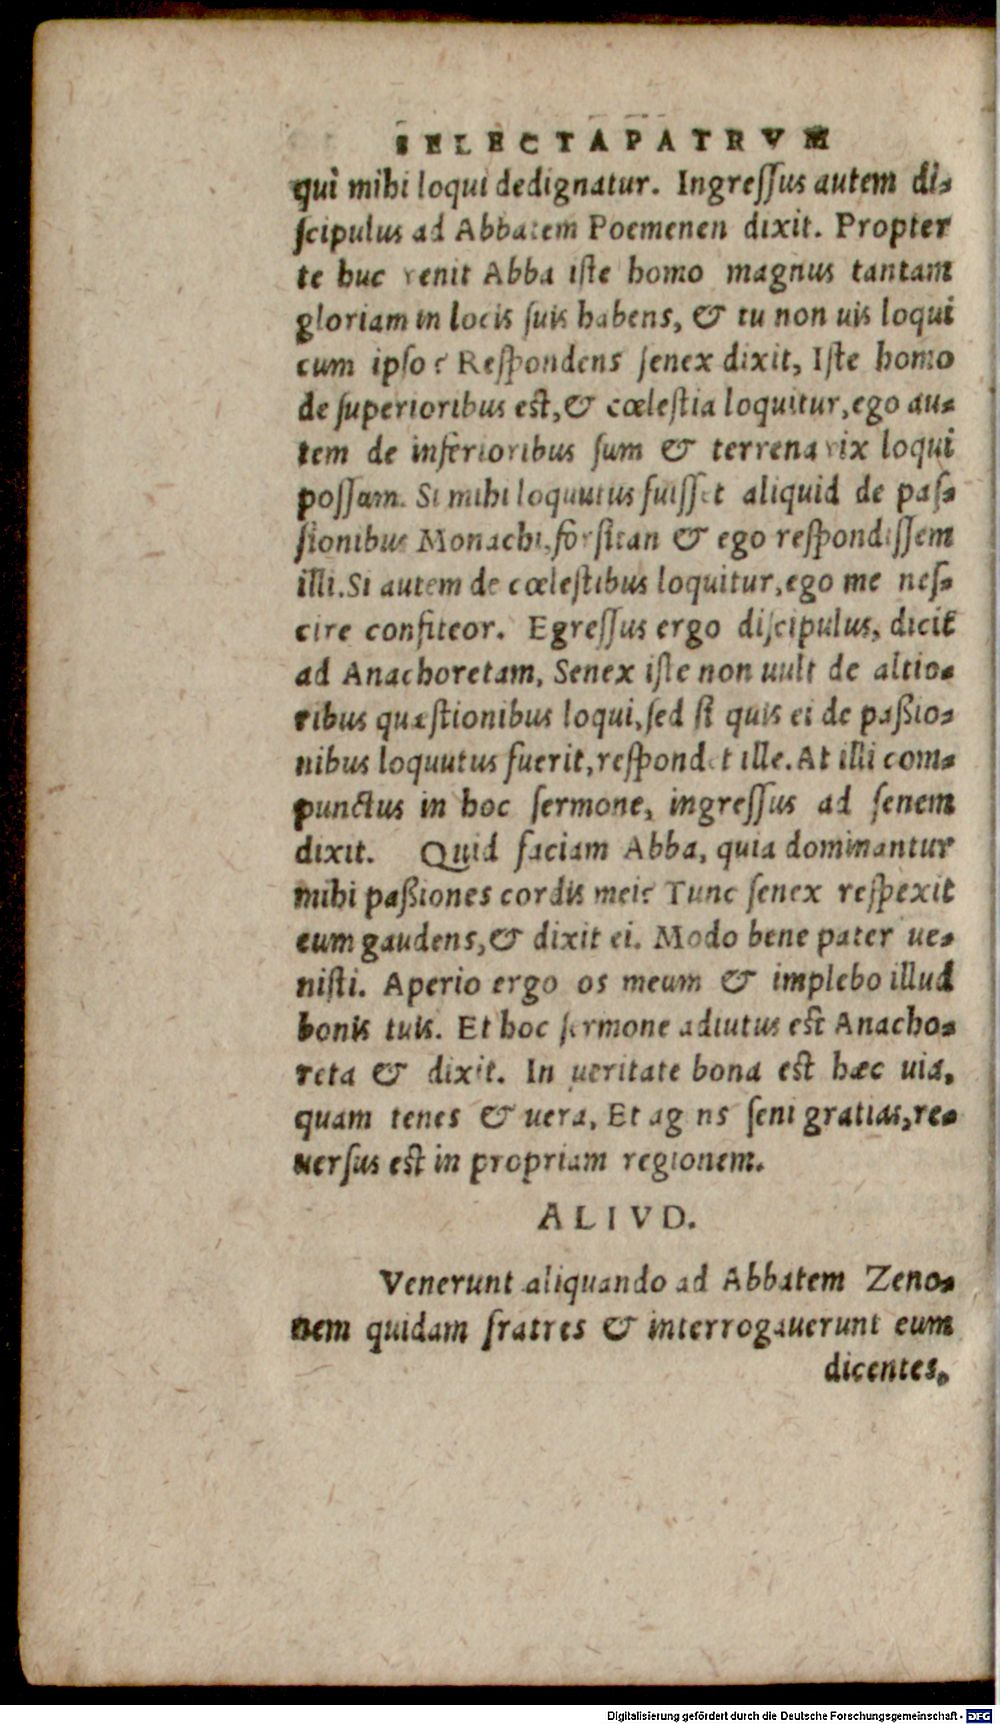 SELECTA PATRVM
qui mihi loqui dedignatur. Ingreſſus autem di-
ſcipulus ad Abbatem Poemenen dixit. Propter
te huc venit Abba iſte homo magnus tantam
gloriam in locis ſuis habens, & tu non uis loqui
cum ipſo? Reſpondens ſenex dixit, Iſte homo
de ſuperioribus eſt, & cœleſtia loquitur, ego au-
tem de inferioribus ſum & terrena vix loqui
poſſam. Si mihi loquutus fuiſſet aliquid de paſ-
ſionibus Monachi, forſitan & ego reſpondiſſem
illi. Si autem de cœleſtibus loquitur, ego me neſ-
cire confiteor. Egreſſus ergo diſcipulus, dicit
ad Anachoretam, Senex iſte non uult de altio-
ribus quæſtionibus loqui, ſed ſi quis ei de paßio-
nibus loquutus fuerit, reſpondet ille. At illi com-
punctus in hoc ſermone, ingreſſus ad ſenem
dixit. Quid faciam Abba, quia dominantur
mihi paßiones cordis mei? Tunc ſenex reſpexit
eum gaudens, & dixit ei. Modo bene pater ue-
niſti. Aperio ergo os meum & implebo illud
bonis tuis. Et hoc ſermone adiutus eſt Anacho-
reta & dixit. In ueritate bona eſt hæc uia,
quam tenes & uera, Et agens ſeni gratias, re-
uerſus eſt in propriam regionem.
ALIVD.
Venerunt aliquando ad Abbatem Zeno-
nem quidam fratres & interrogauerunt eum
dicentes,
Digitalisierung gefördert durch die Deutsche Forschungsgemeinschaft - DFG